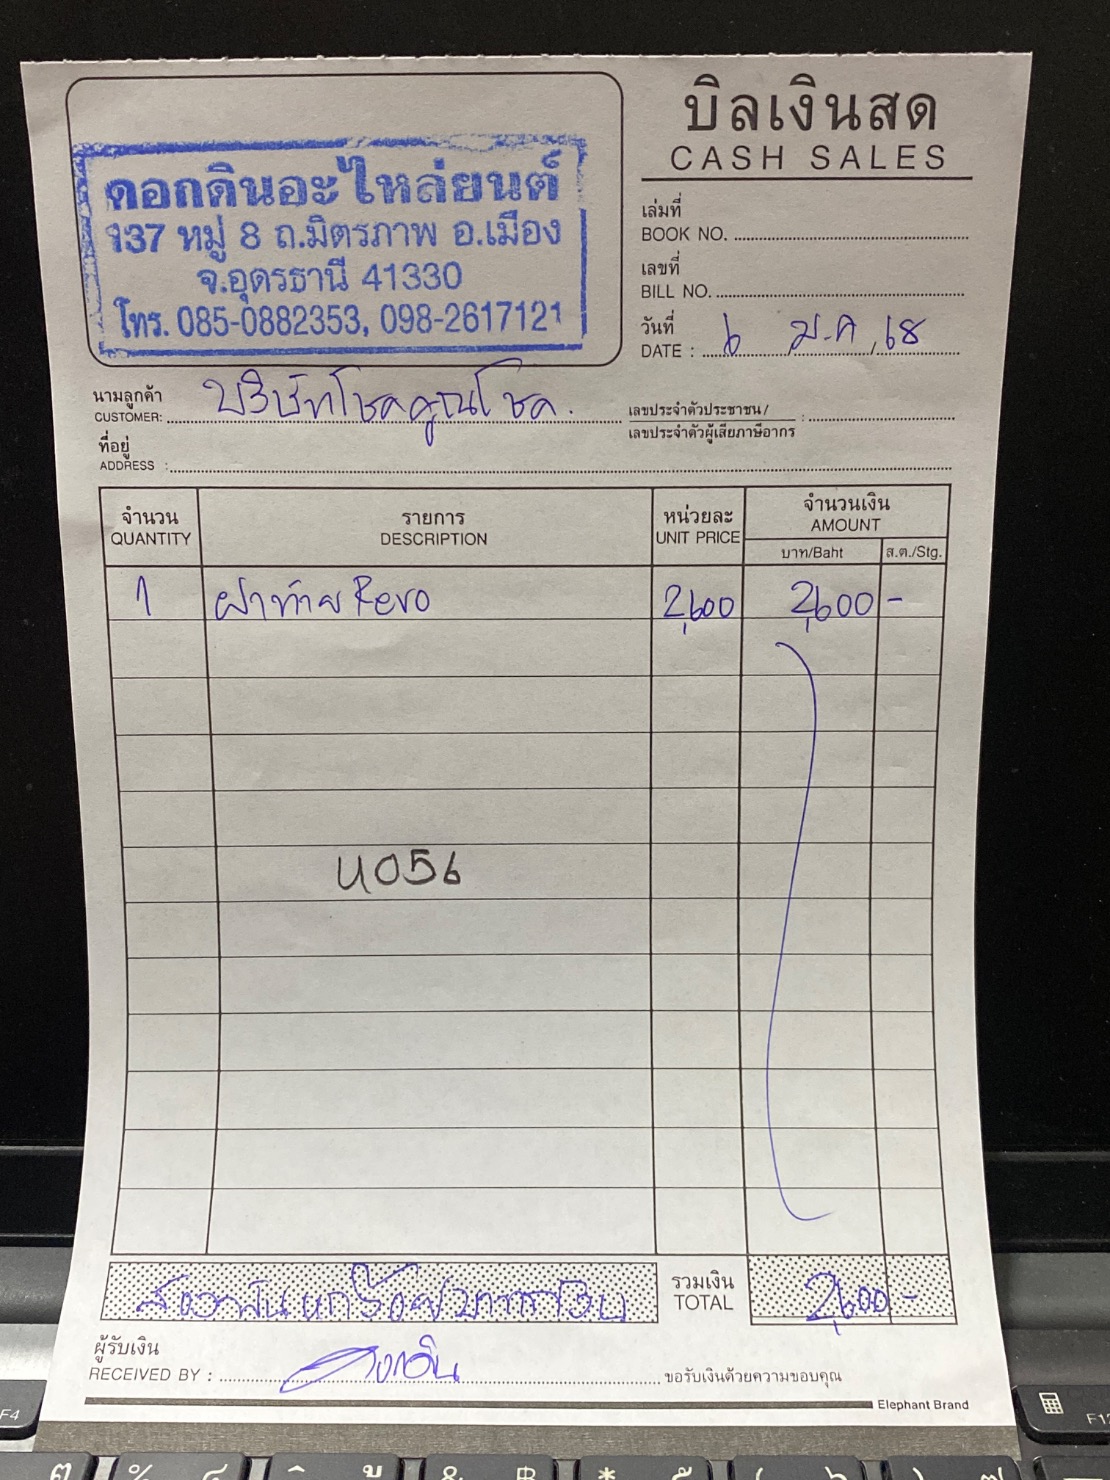 บิลเงินสด
CASH SALES
ดอกดินอะไหล่ยนต์
137 หมู่ 8 ถ.มิตรภาพ อ.เมือง
จ.อุดรธานี 41330
โทร. 085-0882353, 098-2617121
เล่มที่
BOOK NO.
เลขที่
BILL NO.
วันที่
DATE : ๖ ม.ค. 68
นามลูกค้า
CUSTOMER: บริษัทโชคคูณโชค.
เลขประจำตัวประชาชน/
เลขประจำตัวผู้เสียภาษีอากร :
ที่อยู่
ADDRESS :
จำนวน รายการ หน่วยละ จำนวนเงิน
QUANTITY DESCRIPTION UNIT PRICE AMOUNT
บาท/Baht ส.ต./Stg.
1 ฝาท้าย Revo 2,600 2,600 -
U056
สองพันหกร้อยบาทถ้วน รวมเงิน
TOTAL 2,600 -
ผู้รับเงิน
RECEIVED BY : ขอรับเงินด้วยความขอบคุณ
Elephant Brand
F4
F12
ฅ % ๔ ู & ฿ * ๕ ( ๖ ) ๗